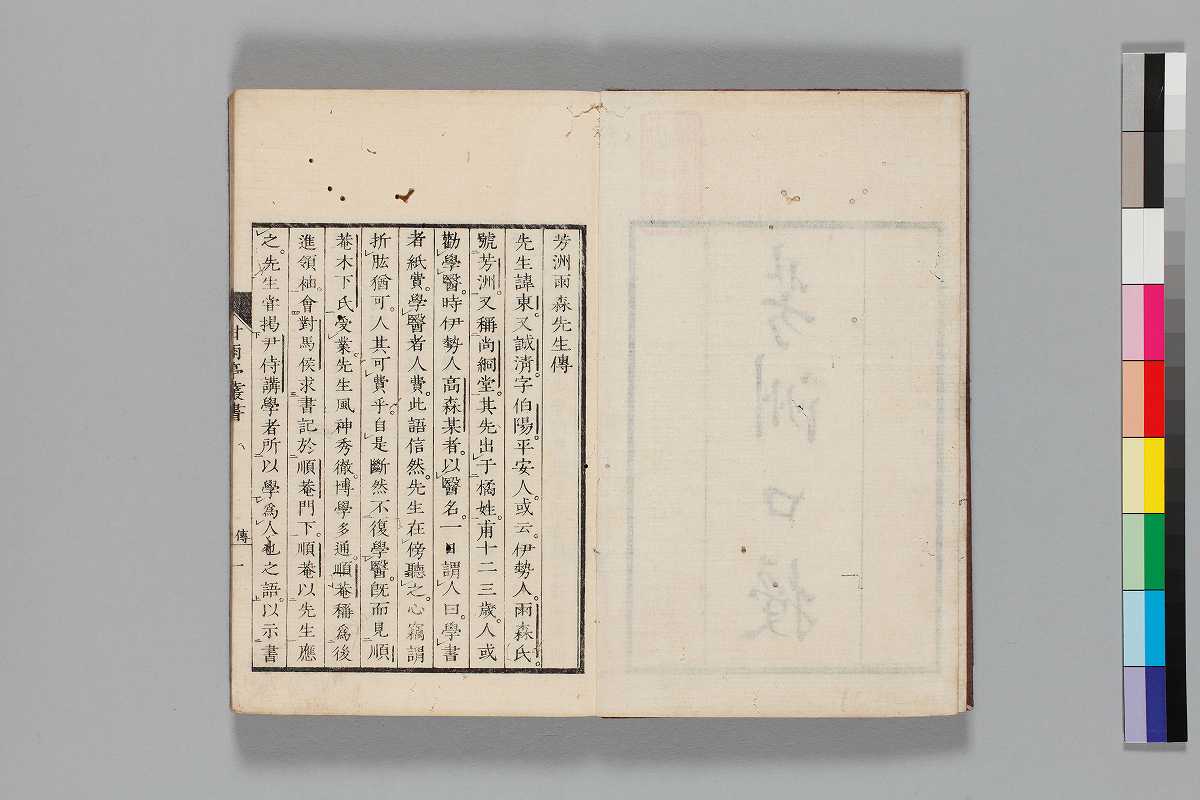 芳洲雨森先生傳
先生諱東。又誠淸。字伯陽。平安人。或云。伊勢人。雨森氏。
號芳洲。又稱尚絅堂。其先出于橘姓。甫十二三歲。人或
勸學醫。時伊勢人高森某者。以醫名。一日謂人曰。學書
者紙費。學醫者人費。此語信然。先生在傍聽之。心竊謂
折肱猶可。人其可費乎。自是斷然不復學醫。旣而見順
菴木下氏受業。先生風神秀徹。博學多通。順菴稱爲後
進領袖。會對馬侯求書記於順菴門下。順菴以先生應
之。先生甞揭尹侍講學者所以學爲人也之語。以示書
甘雨亭叢書
傳
一
芳洲口授